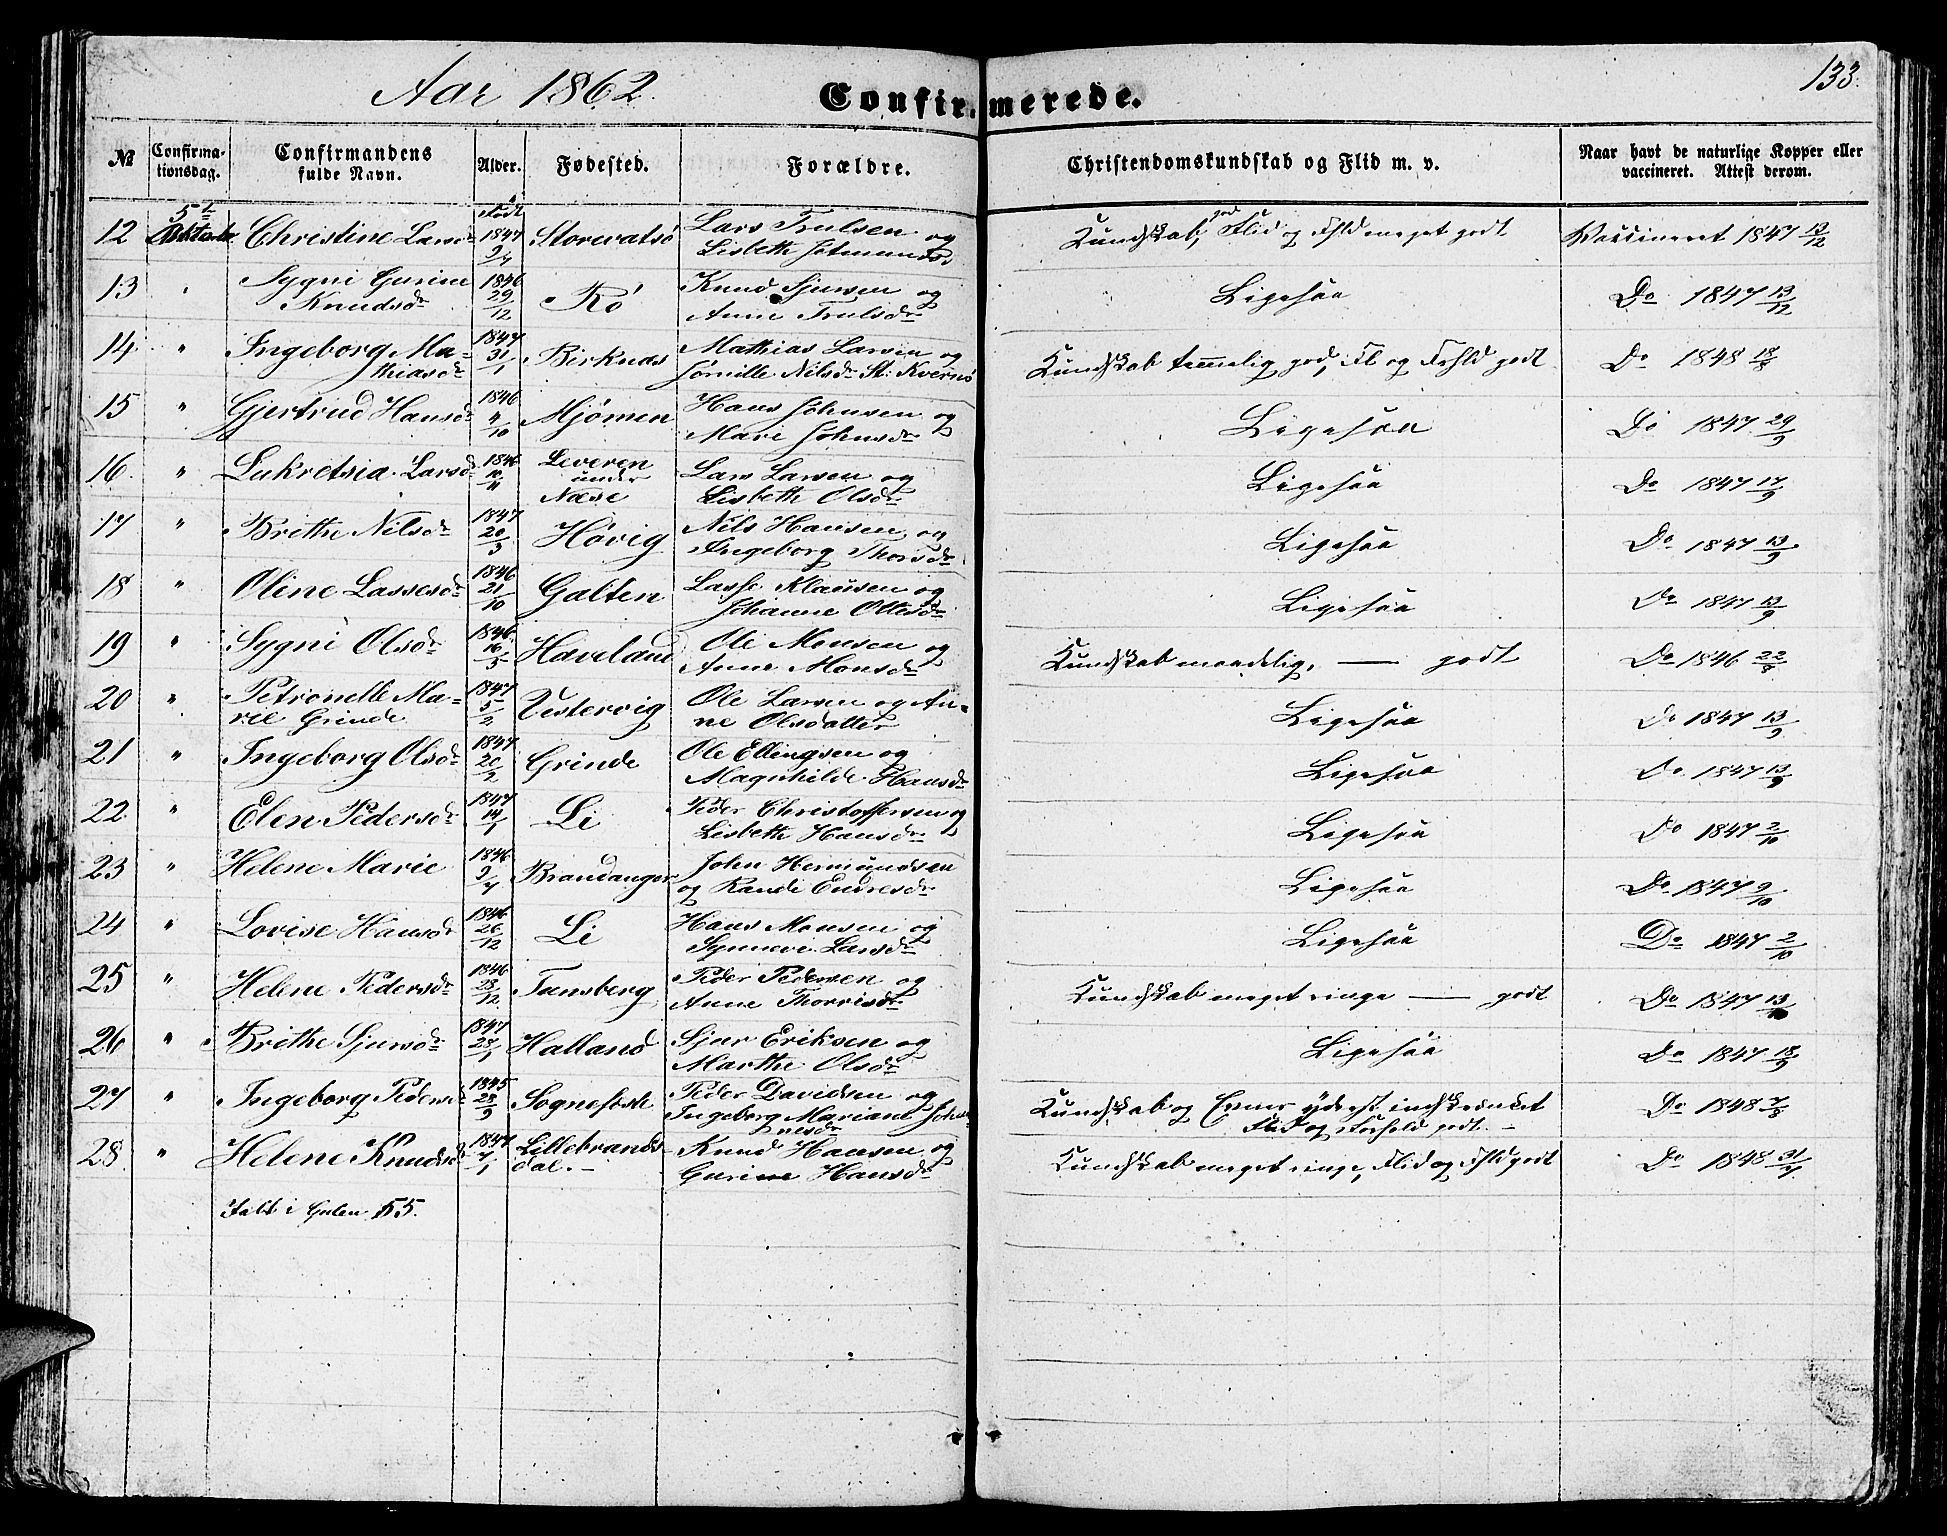 Aar 1862.
Confirmerede.
133.
№
Confirmationsdag.
Confirmandens fulde Navn.
Alder.
Fødested.
Forældre.
Christendomskundskab og Flid m. v.
Naar havt de naturlige Kopper eller vaccineret. Attest derom.
12 5te Christine Larsdr født 1847 9/4 Lars Trulsen og Lisbeth Kundskab, god Flid og Fhld meget godt Vaccineret 1847 13/12
13 " Sygni Gurine Knudsdr 1846 29/12 Rö Knud Sjursen og Anne Trulsdr Ligesaa Do 1847 13/12
14 " Ingeborg Mathiasdr 1847 31/1 Birknæs Mathias Larsen og Nilsdr St: Kversø Kundskab temmelig god, Fl og Fhld godt Do 1848 18/8
15 " Gjertrud Hansdr 1846 4/10 Mjømen Hans Johnsen og Mari Johnsdr Ligesaa Do 1847 29/9
16. " Lukretsia Larsdr 1846 10/11 Leveren under Næse Lars Larsen og Lisbeth Olsdr Ligesaa Do 1847 17/9
17 " Brithe Nilsdr 1847 20/3 Høvig Nils Hansen og Ingeborg Thorsdr Ligesaa Do 1847 13/9
18 " Oline Lassesdr 1846 21/10 Galten Lasse Klausen og Johanne Ottesdr Ligesaa Do 1847 13/9
19 " Sygni Olsdr 1846 16/5 Haveland Ole Monsen og Anne Monsdr Kundskab maadelig, — godt Do 1846 22/8
20 " Petronelle Marie Grinde 1847 5/2 Vestervig Ole Larsen og Anne Olsdatter Ligesaa Do 1847 13/9
21 " Ingeborg Olsdr 1847 20/2 Grinde Ole Ellingsen og Magnhilde Hansdr Ligesaa Do 1847 13/9
22 " Elen Pedersdr 1847 14/1 Li Peder Christoffersen og Lisbeth Hansdr Ligesaa Do 1847 2/10
23 " Helene Marie 1846 9/7 Brandanger John Hermundsen og Rande Endresdr Ligesaa Do 1847 2/10
24 " Lovise Hansdr 1846 26/12 Li Hans Monsen og Synnevi Larsdr Ligesaa Do 1847 2/10
25 " Helene Pedersdr 1846 28/12 Tunsberg Peder Pedersen og Anne Thorrisdr Kundskab meget ringe — godt Do 1847
26 " Brithe Sjursdr 1847 28/1 Halland Sjur Eriksen og Marthe Olsdr Ligesaa Do 1847 18/9
27 " Ingeborg Pedersd 1845 28/9 Sognefæst Peder Davidsen og Ingeborg Mariane Johannesdr Kundskab og Evner yderst indskrænket Flid og Forhold godt. Do 1848 7/8
28 " Helene Knudsdr 1847 7/1 Lillebrandsdal. Knud Hansen og Gurine Hansdr Kundskab meget ringe, Flid og Fhld godt Do 1848
Talt i Gulen 55.